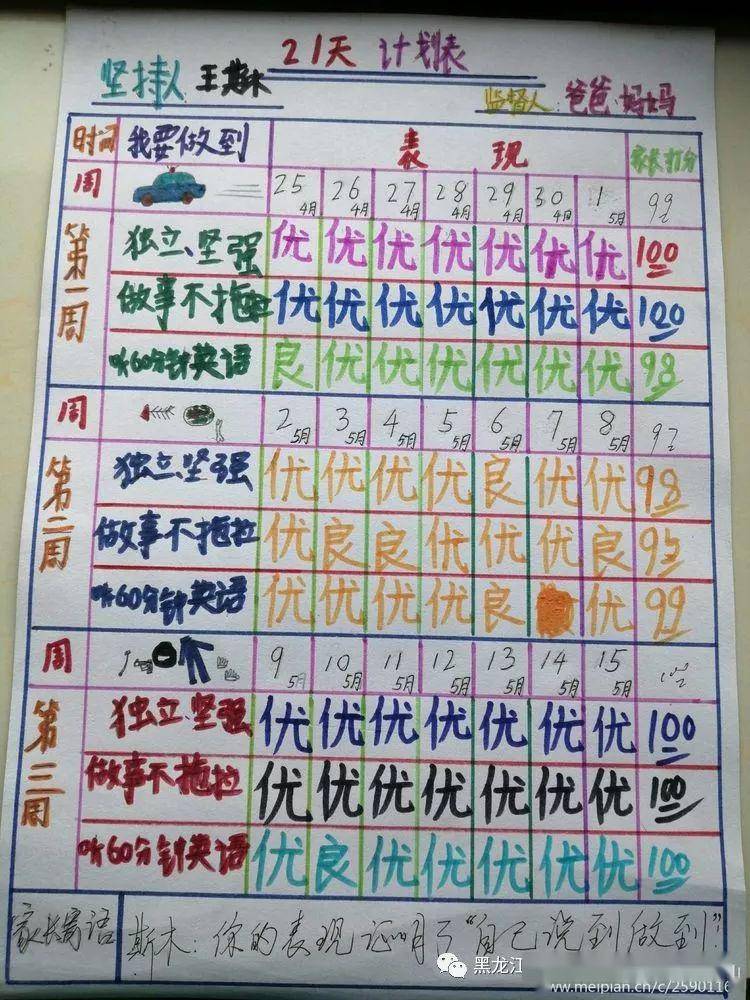 21天 计划表
坚持人 王斯木
监督人: 爸爸、妈妈
时间 我要做到 表 现 家长打分
周 25 4月 26 4月 27 4月 28 4月 29 4月 30 4月 1 5月 99
第一周
独立、坚强 优 优 优 优 优 优 优 100
做事不拖拉 优 优 优 优 优 优 优 100
听60分钟英语 良 优 优 优 优 优 优 98
周 2 5月 3 5月 4 5月 5 5月 6 5月 7 5月 8 5月
第二周
独立、坚强 优 优 优 优 良 优 优 98
做事不拖拉 优 良 良 优 优 优 良
听60分钟英语 优 优 优 优 良 优 99
周 9 5月 10 5月 11 5月 12 5月 13 5月 14 5月 15 5月
第三周
独立、坚强 优 优 优 优 优 优 优 100
做事不拖拉 优 优 优 优 优 优 优 100
听60分钟英语 优 良 优 优 优 优 优 100
家长寄语 斯木: 你的表现证明了“自己说到做到”
黑龙江
www.meipian.cn/c/2590116